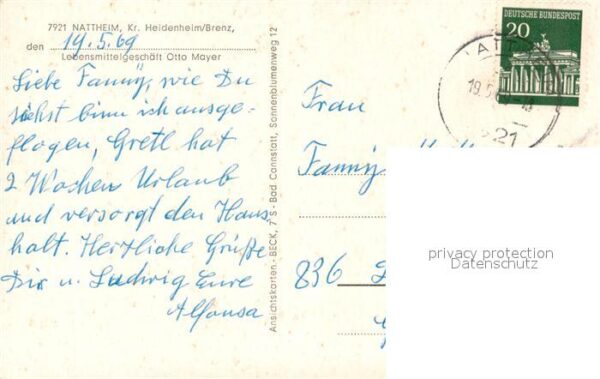 7921 NATTHEIM, Kr. Heidenheim/Brenz,
den 19.5.69
Lebensmittelgeschäft Otto Mayer
Liebe Fanny, wie Du
siehst binn ich ausge-
flogen, Gretl hat
2 Wochen Urlaub
und versorgt den Haus-
halt. Herzliche Grüße
Dir u. Ludwig Eure
Alfonsa
Ansichtskarten - BECK, 7 S - Bad Cannstatt, Sonnenblumenweg 12
DEUTSCHE BUNDESPOST
20
Frau
Fanny
836
privacy protection
Datenschutz